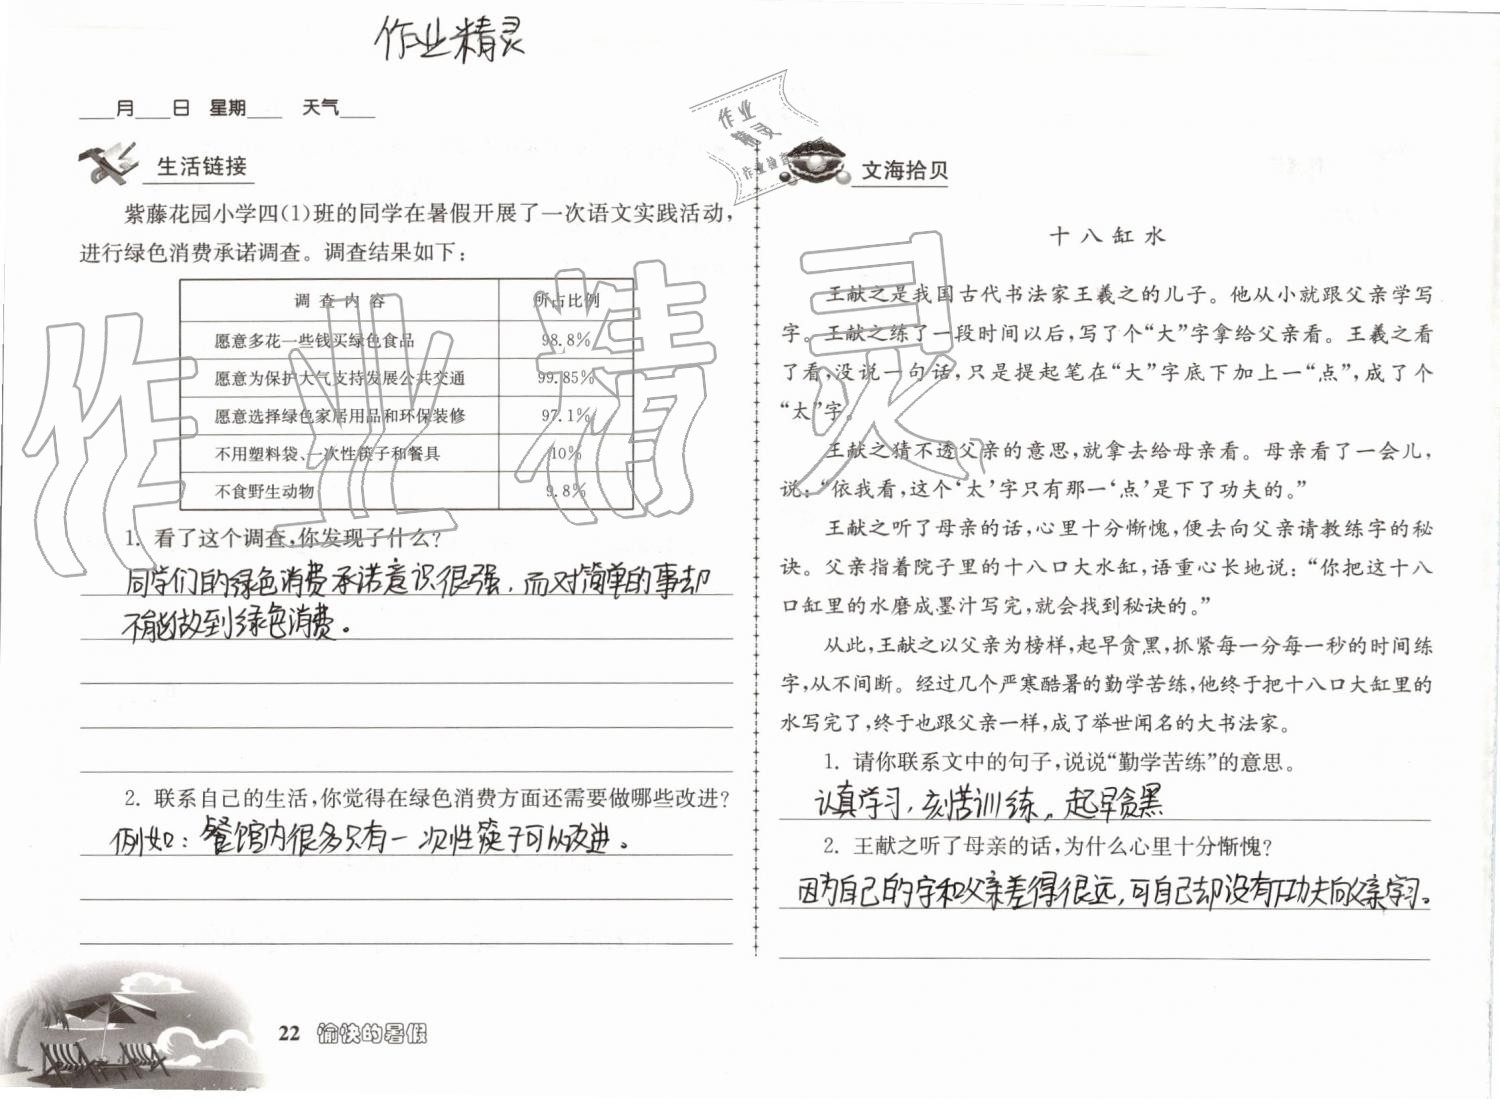 作业精灵
___月___日 星期___ 天气___
生活链接
紫藤花园小学四(1)班的同学在暑假开展了一次语文实践活动，
进行绿色消费承诺调查。调查结果如下：
调查内容 所占比例
愿意多花一些钱买绿色食品 98.8%
愿意为保护大气支持发展公共交通 99.85%
愿意选择绿色家居用品和环保装修 97.1%
不用塑料袋、一次性筷子和餐具 10%
不食野生动物 9.8%
1. 看了这个调查，你发现了什么？
同学们的绿色消费承诺意识很强，而对简单的事却
不能做到绿色消费。
2. 联系自己的生活，你觉得在绿色消费方面还需要做哪些改进？
例如：餐馆内很多只有一次性筷子可以改进。
22 愉快的暑假
作业
精灵
文海拾贝
十八缸水
王献之是我国古代书法家王羲之的儿子。他从小就跟父亲学写
字。王献之练了一段时间以后，写了个“大”字拿给父亲看。王羲之看
了看，没说一句话，只是提起笔在“大”字底下加上一“点”，成了个
“太”字。
王献之猜不透父亲的意思，就拿去给母亲看。母亲看了一会儿，
说：“依我看，这个‘太’字只有那一‘点’是下了功夫的。”
王献之听了母亲的话，心里十分惭愧，便去向父亲请教练字的秘
诀。父亲指着院子里的十八口大水缸，语重心长地说：“你把这十八
口缸里的水磨成墨汁写完，就会找到秘诀的。”
从此，王献之以父亲为榜样，起早贪黑，抓紧每一分每一秒的时间练
字，从不间断。经过几个严寒酷暑的勤学苦练，他终于把十八口大缸里的
水写完了，终于也跟父亲一样，成了举世闻名的大书法家。
1. 请你联系文中的句子，说说“勤学苦练”的意思。
认真学习，刻苦训练。起早贪黑
2. 王献之听了母亲的话，为什么心里十分惭愧？
因为自己的字和父亲差得很远，可自己却没有下功夫向父亲学习。
作业精灵